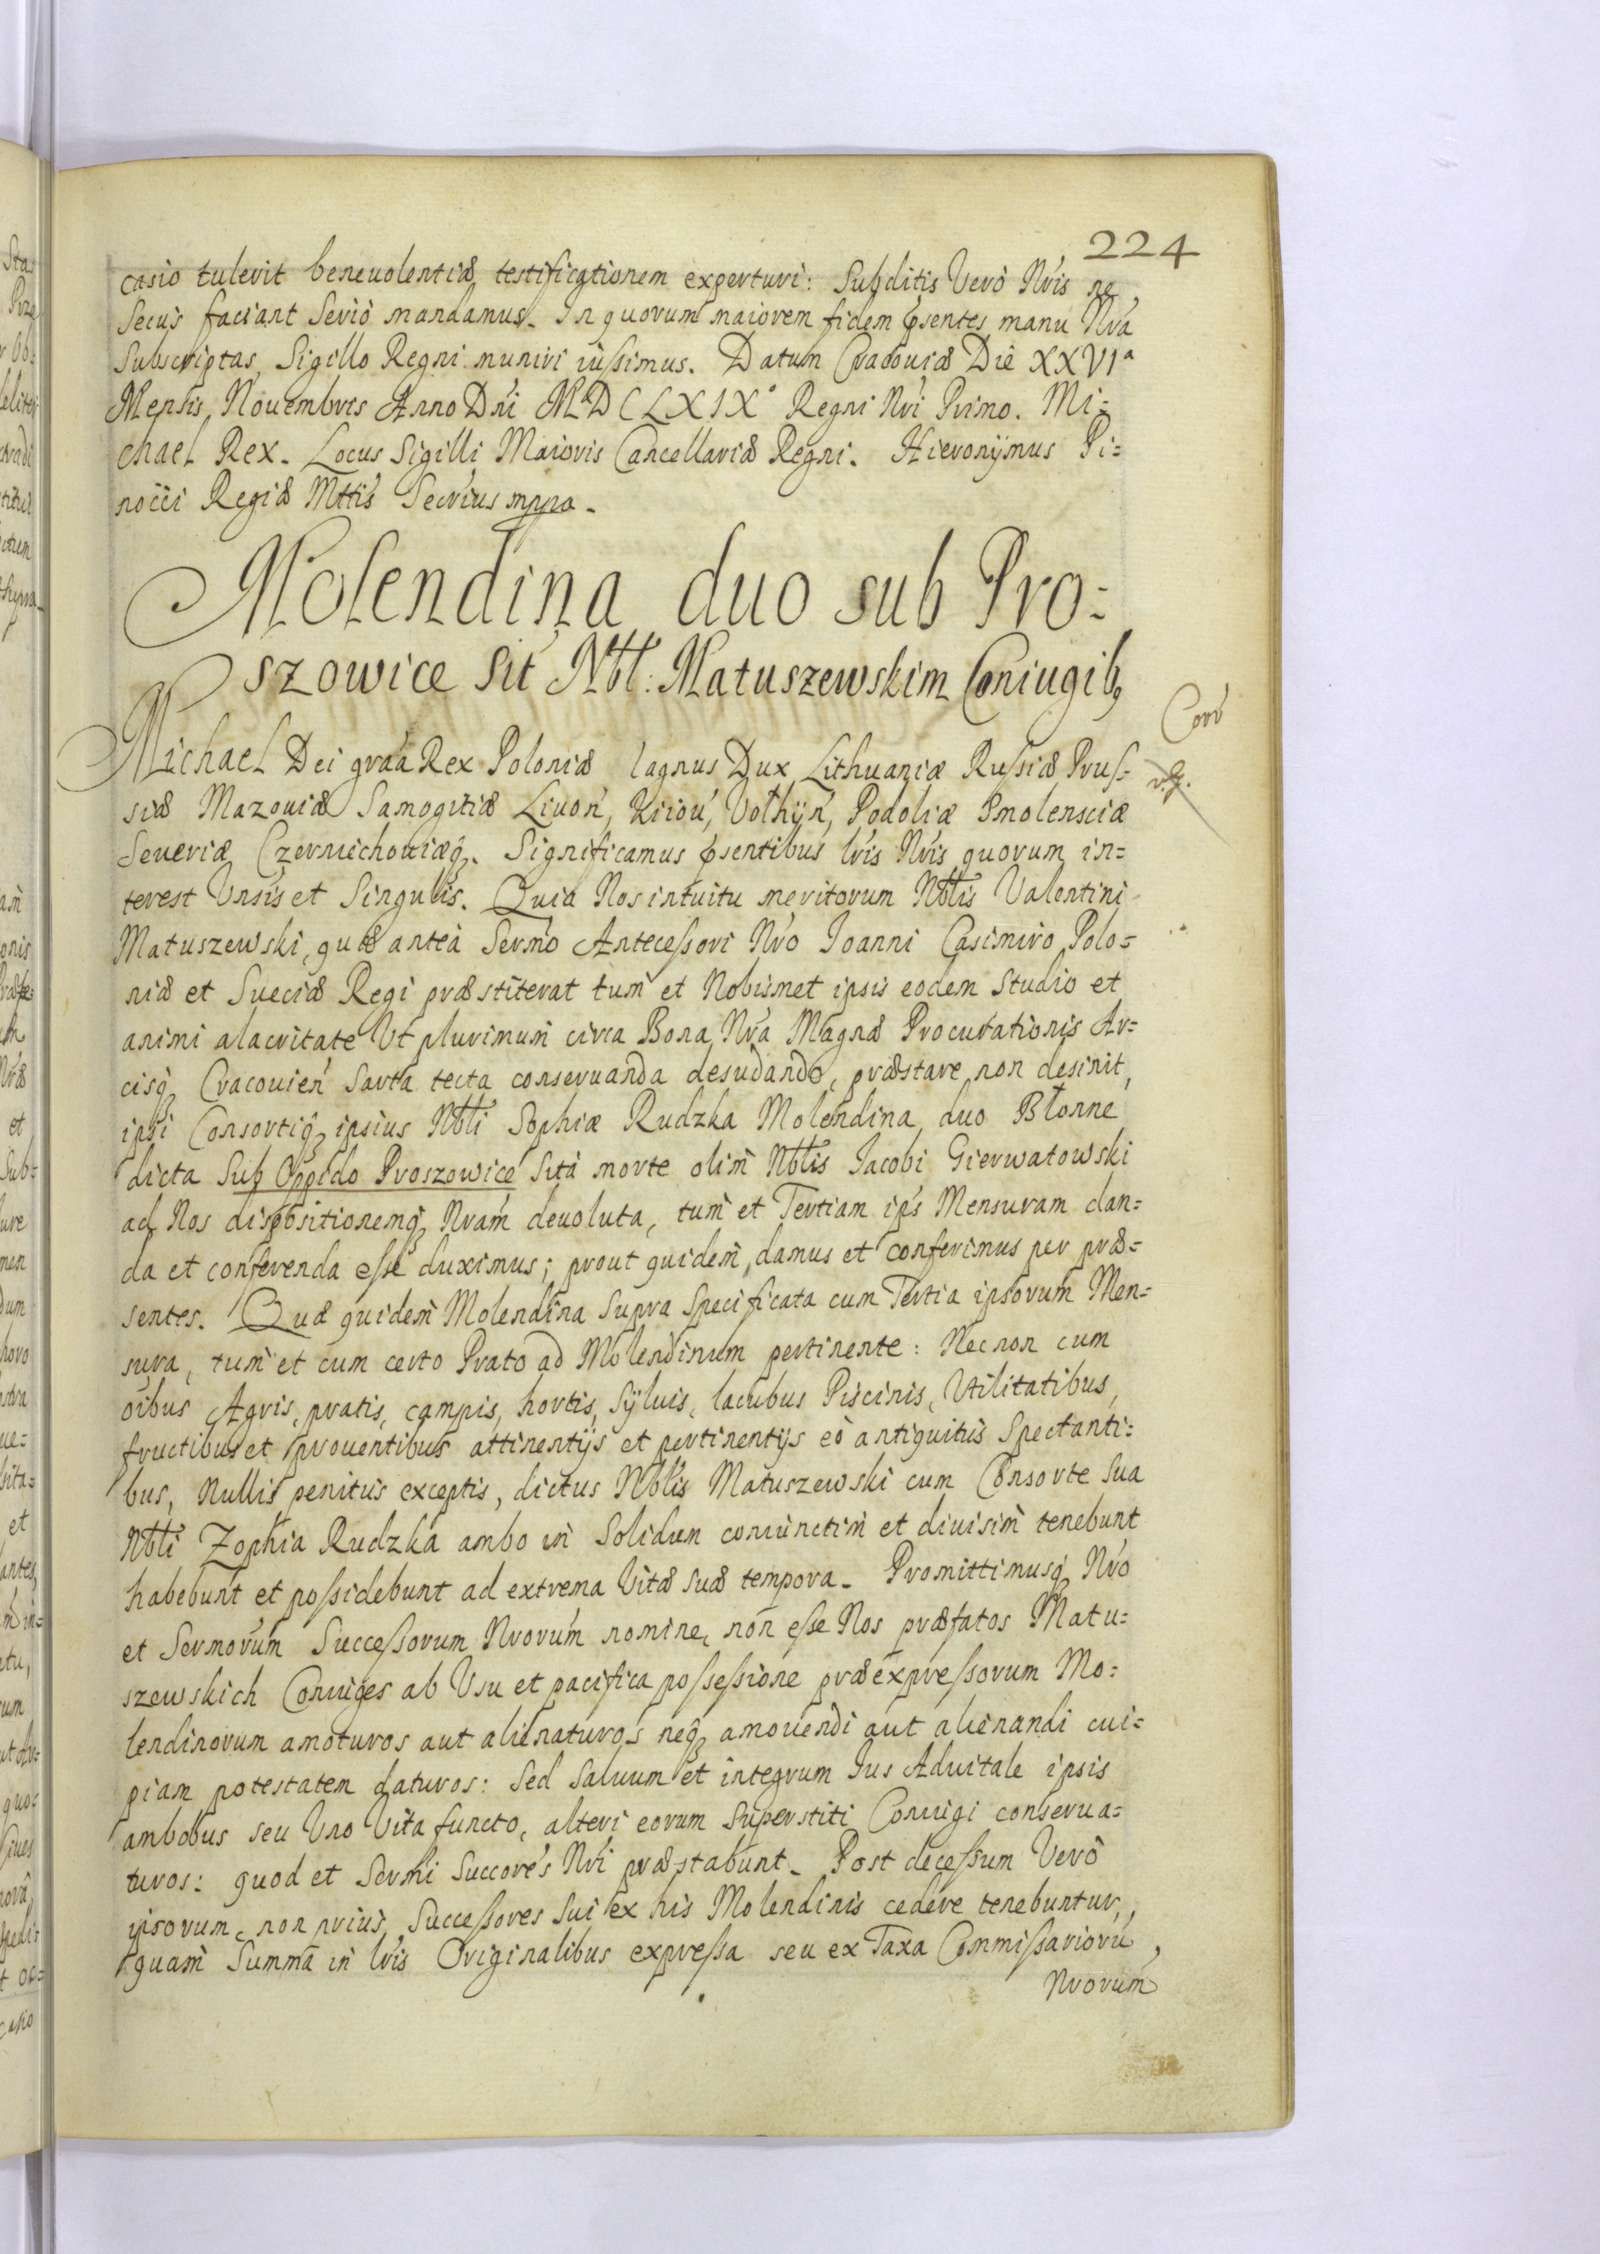 224
casio tulerit beneuolentiæ testificationem experturi: Subditis Verò Nris ne
Secus faciant Seriò mandamus. In quorum maiorem fidem psentes manu Nra
Subscriptas, Sigillo Regni muniri iussimus. Datum Cracouiæ Die XXVIa
Mensis, Nouembris Anno Dni MDCLXIX° Regni Nri Primo. Mi=
chael Rex. Locus Sigilli Maioris Cancellariæ Regni. Hieronÿmus Pi=
nocci Regiæ Mttis Secrius mppa.
Molendina duo sub Pro=
szowice Sit Nbl: Matuszewskim Coniugibq
Corr
Michael Dei graa Rex Poloniæ Magnus Dux Lithuaniæ Russiæ Prus=
siæ Mazouiæ Samogitiæ Liuon, Kiiou, Volhÿn, Podoliæ Smolensciæ
Seueriæ Czernichouiæq. Significamus psentibus lris Nris quorum in=
terest Vnsis et Singulis. Quia Nos intuitu meritorum Nblis Valentini
Matuszewski, quæ anteà Sermo Antecessori Nro Joanni Casimiro Polo=
niæ et Sueciæ Regi præstiterat tum et Nobismet ipsis eodem Studio et
animi alacritate Vt plurimum circa Bona Nra Magnæ Procurationis Ar=
cisq Cracouien Sarta tecta conseruanda desudando, præstare non desinit,
ipsi Consortiq ipsius Nbli Sophiæ Rudzka Molendina duo Błonne
dicta Sub Oppido Proszowice Sita morte olim Nblis Jacobi Gierwatowski
ad Nos dispositionemq Nram deuoluta, tum et Tertiam ips Mensuram dan=
da et conferenda esse duximus; prout quidem, damus et conferimus per præ=
sentes. Quæ quidem Molendina Supra Specificata cum Tertia ipsorum Men=
sura, tum et cum certo Prato ad Molendinum pertinente: Nec non cum
oibus Agris, pratis, campis, hortis, Sÿluis, lacubus Piscinis, Vtilitatibus,
fructibus et prouentibus attinentijs et pertinentijs eò antiquitùs Spectanti=
bus, Nullis penitùs exceptis, dictus Nblis Matuszewski cum Consorte Sua
Nbli Zophia Rudzka ambo in Solidum coniunctim et diuisim tenebunt
habebunt et possidebunt ad extrema Vitæ Suæ tempora. Promittimusq Nro
et Sermorum Successorum Nrorum nomine, non esse Nos præfatos Matu=
szewskich Coniuges ab Vsu et pacifica possessione præexpressorum Mo=
lendinorum amoturos aut alienaturos neq amouendi aut alienandi cui=
piam potestatem daturos: Sed Saluum et integrum Ius Aduitale ipsis
ambobus seu Vno Vita functo, alteri eorum Superstiti Coniugi conserua=
turos: quod et Sermi Succores Nri præstabunt. Post decessum Verò
ipsorum, non priùs, Successores Sui ex his Molendinis cedere tenebuntur,
quam Summa in lris Originalibus expressa seu ex Taxa Commissariorū
Nrorum